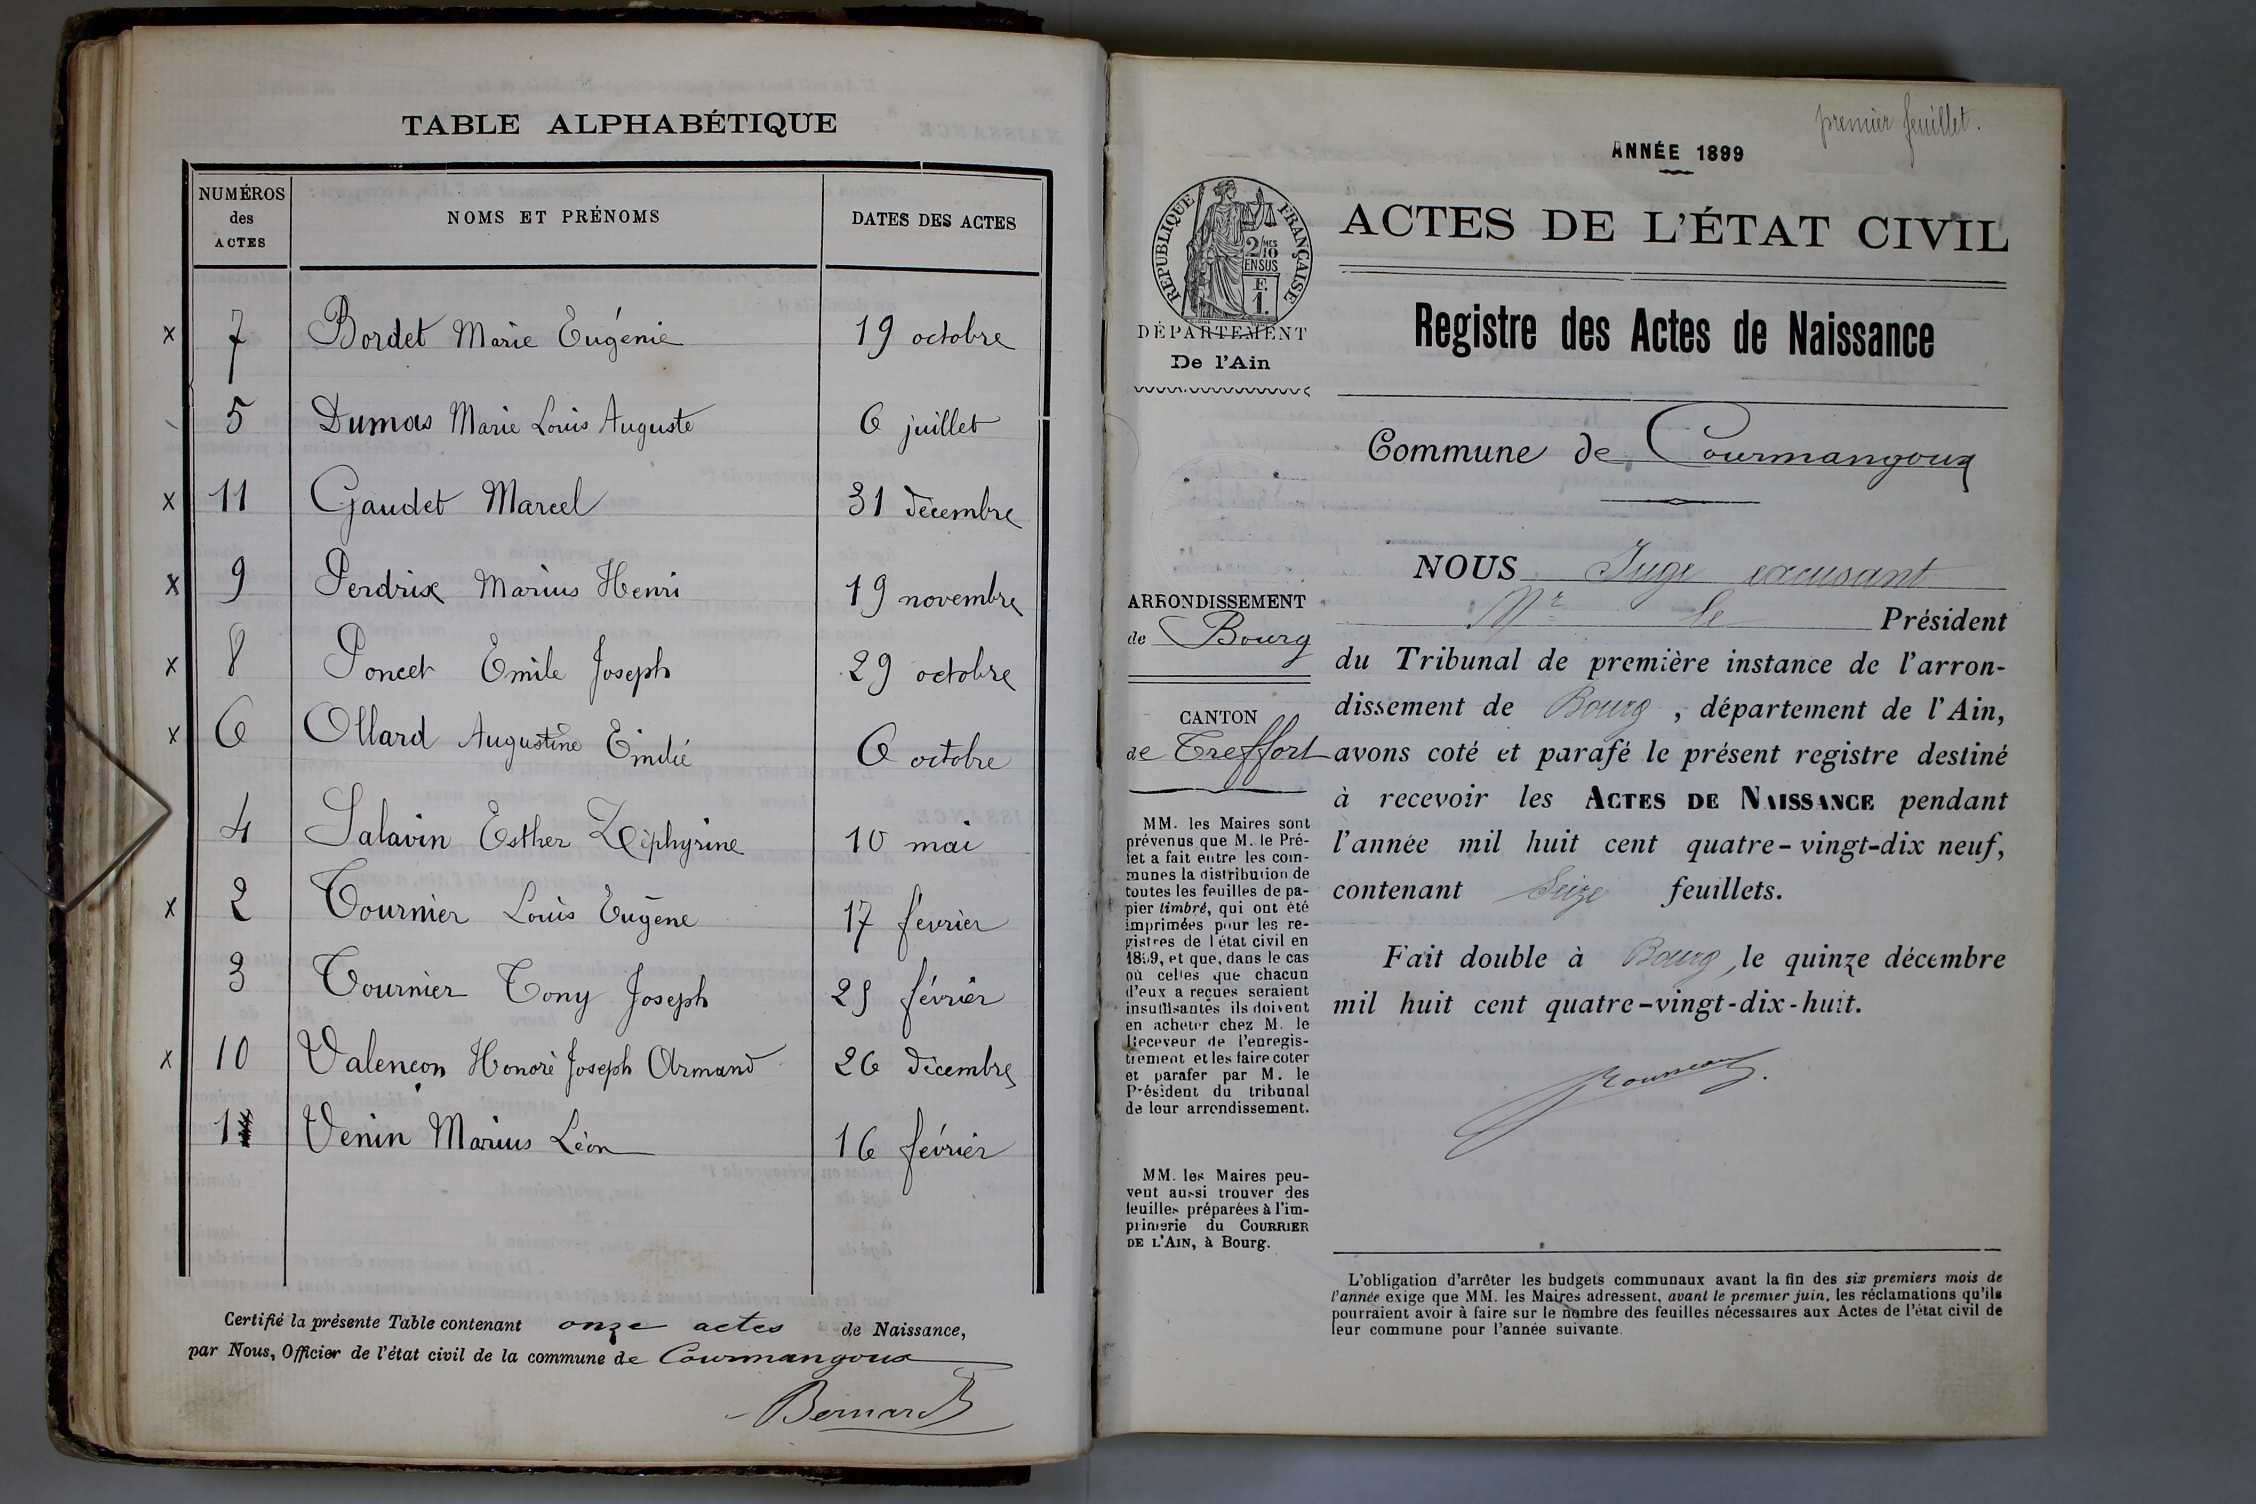 TABLE ALPHABÉTIQUE
NUMÉROS des ACTES NOMS ET PRÉNOMS DATES DES ACTES
x 7 Bordet Marie Eugénie 19 octobre
5 Dumas Marie Louis Auguste 6 juillet
x 11 Gaudet Marcel 31 décembre
x 9 Perdrix Marius Henri 19 novembre
x 8 Poncet Emile Joseph 29 octobre
x 6 Ollard Augustine Emilie 6 octobre
4 Salavin Esther Zéphyrine 10 mai
x 2 Tournier Louis Eugène 17 février
3 Tournier Tony Joseph février
x 10 Valençon Honoré Joseph Armand 26 décembre
1 Venin Marius Léon 16 février
Certifié la présente Table contenant onze actes de Naissance,
par Nous, Officier de l'état civil de la commune de Courmangoux
Bernard
premier feuillet.
ANNÉE 1899
RÉPUBLIQUE FRANÇAISE
2/10 MES
EN SUS
F.
1.
DÉPARTEMENT
De l'Ain
ACTES DE L'ÉTAT CIVIL
Registre des Actes de Naissance
Commune de Courmangoux
ARRONDISSEMENT
de Bourg
CANTON
de Treffort
MM. les Maires sont
prévenus que M. le Pré-
fet a fait entre les com-
munes la distribution de
toutes les feuilles de pa-
pier timbré, qui ont été
imprimées pour les re-
gistres de l'état civil en
1899, et que, dans le cas
où celles que chacun
d'eux a reçues seraient
insuffisantes ils doivent
en acheter chez M. le
Receveur de l'enregis-
trement et les faire coter
et parafer par M. le
Président du tribunal
de leur arrondissement.
MM. les Maires peu-
vent aussi trouver des
feuilles préparées à l'im-
primerie du COURRIER
DE L'AIN, à Bourg.
NOUS Juge excusant
Mr le Président
du Tribunal de première instance de l'arron-
dissement de Bourg, département de l'Ain,
avons coté et parafé le présent registre destiné
à recevoir les ACTES DE NAISSANCE pendant
l'année mil huit cent quatre-vingt-dix neuf,
contenant Seize feuillets.
Fait double à Bourg, le quinze décembre
mil huit cent quatre-vingt-dix-huit.
L'obligation d'arrêter les budgets communaux avant la fin des six premiers mois de
l'année exige que MM. les Maires adressent, avant le premier juin, les réclamations qu'ils
pourraient avoir à faire sur le nombre des feuilles nécessaires aux Actes de l'état civil de
leur commune pour l'année suivante.